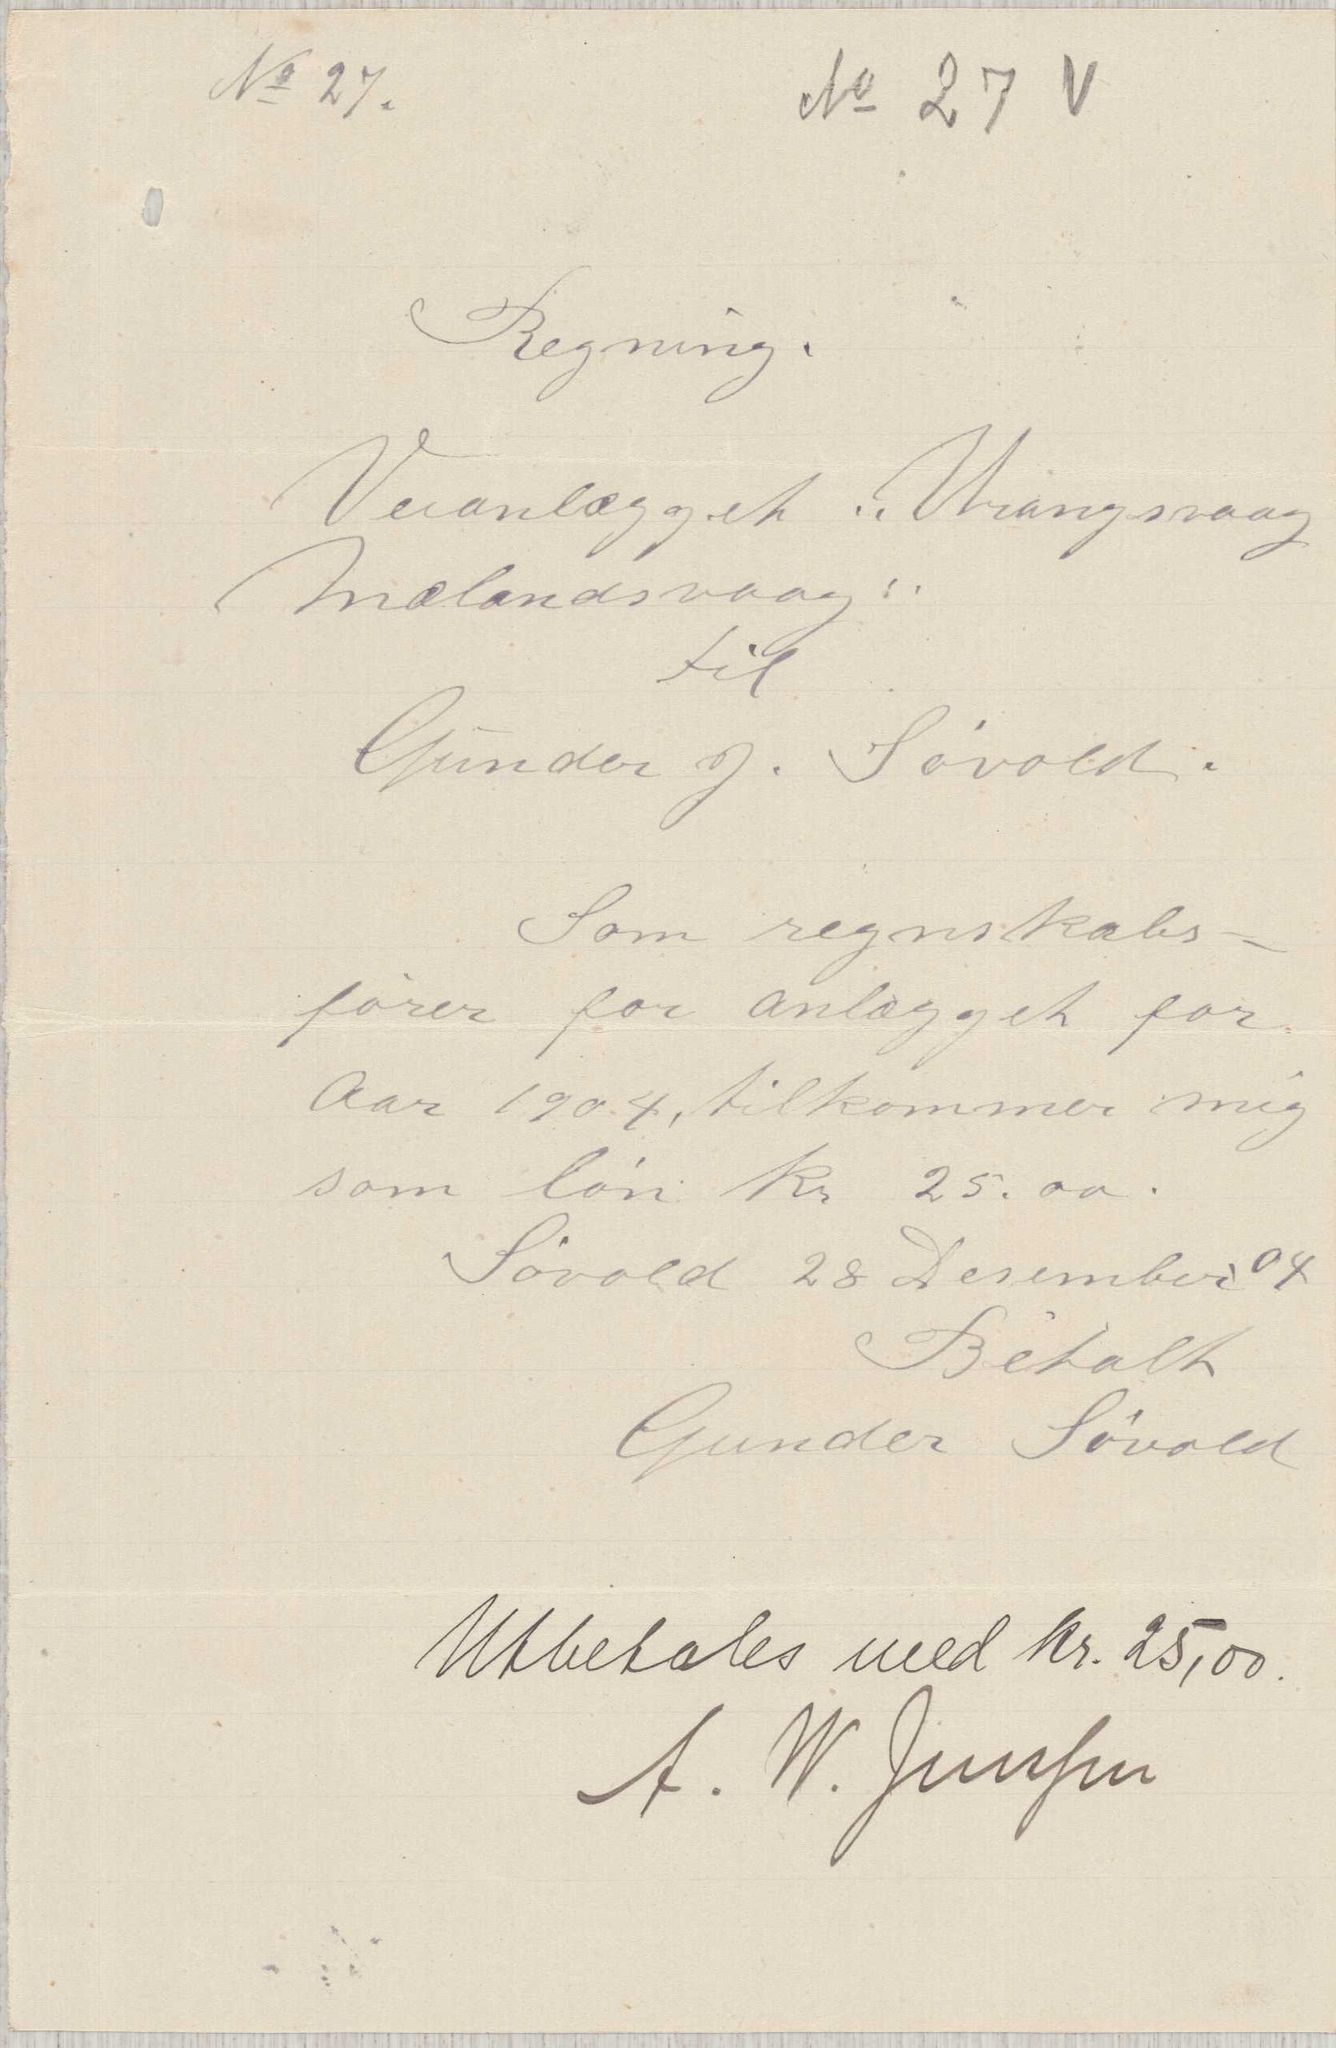 No 27.
No 27 V
Regning.
Veianlægget „Vrangsvaag
Mælandsvaag"
til
Gunder J. Sóvold.
Som regnskabs-
fórer for anlægget for
Aar 1904, tilkommer mig
som lón kr 25.00.
Sóvold 28 Desember 04
Betalt
Gunder Sóvold
Utbetales med kr. 25,00.
A. W.